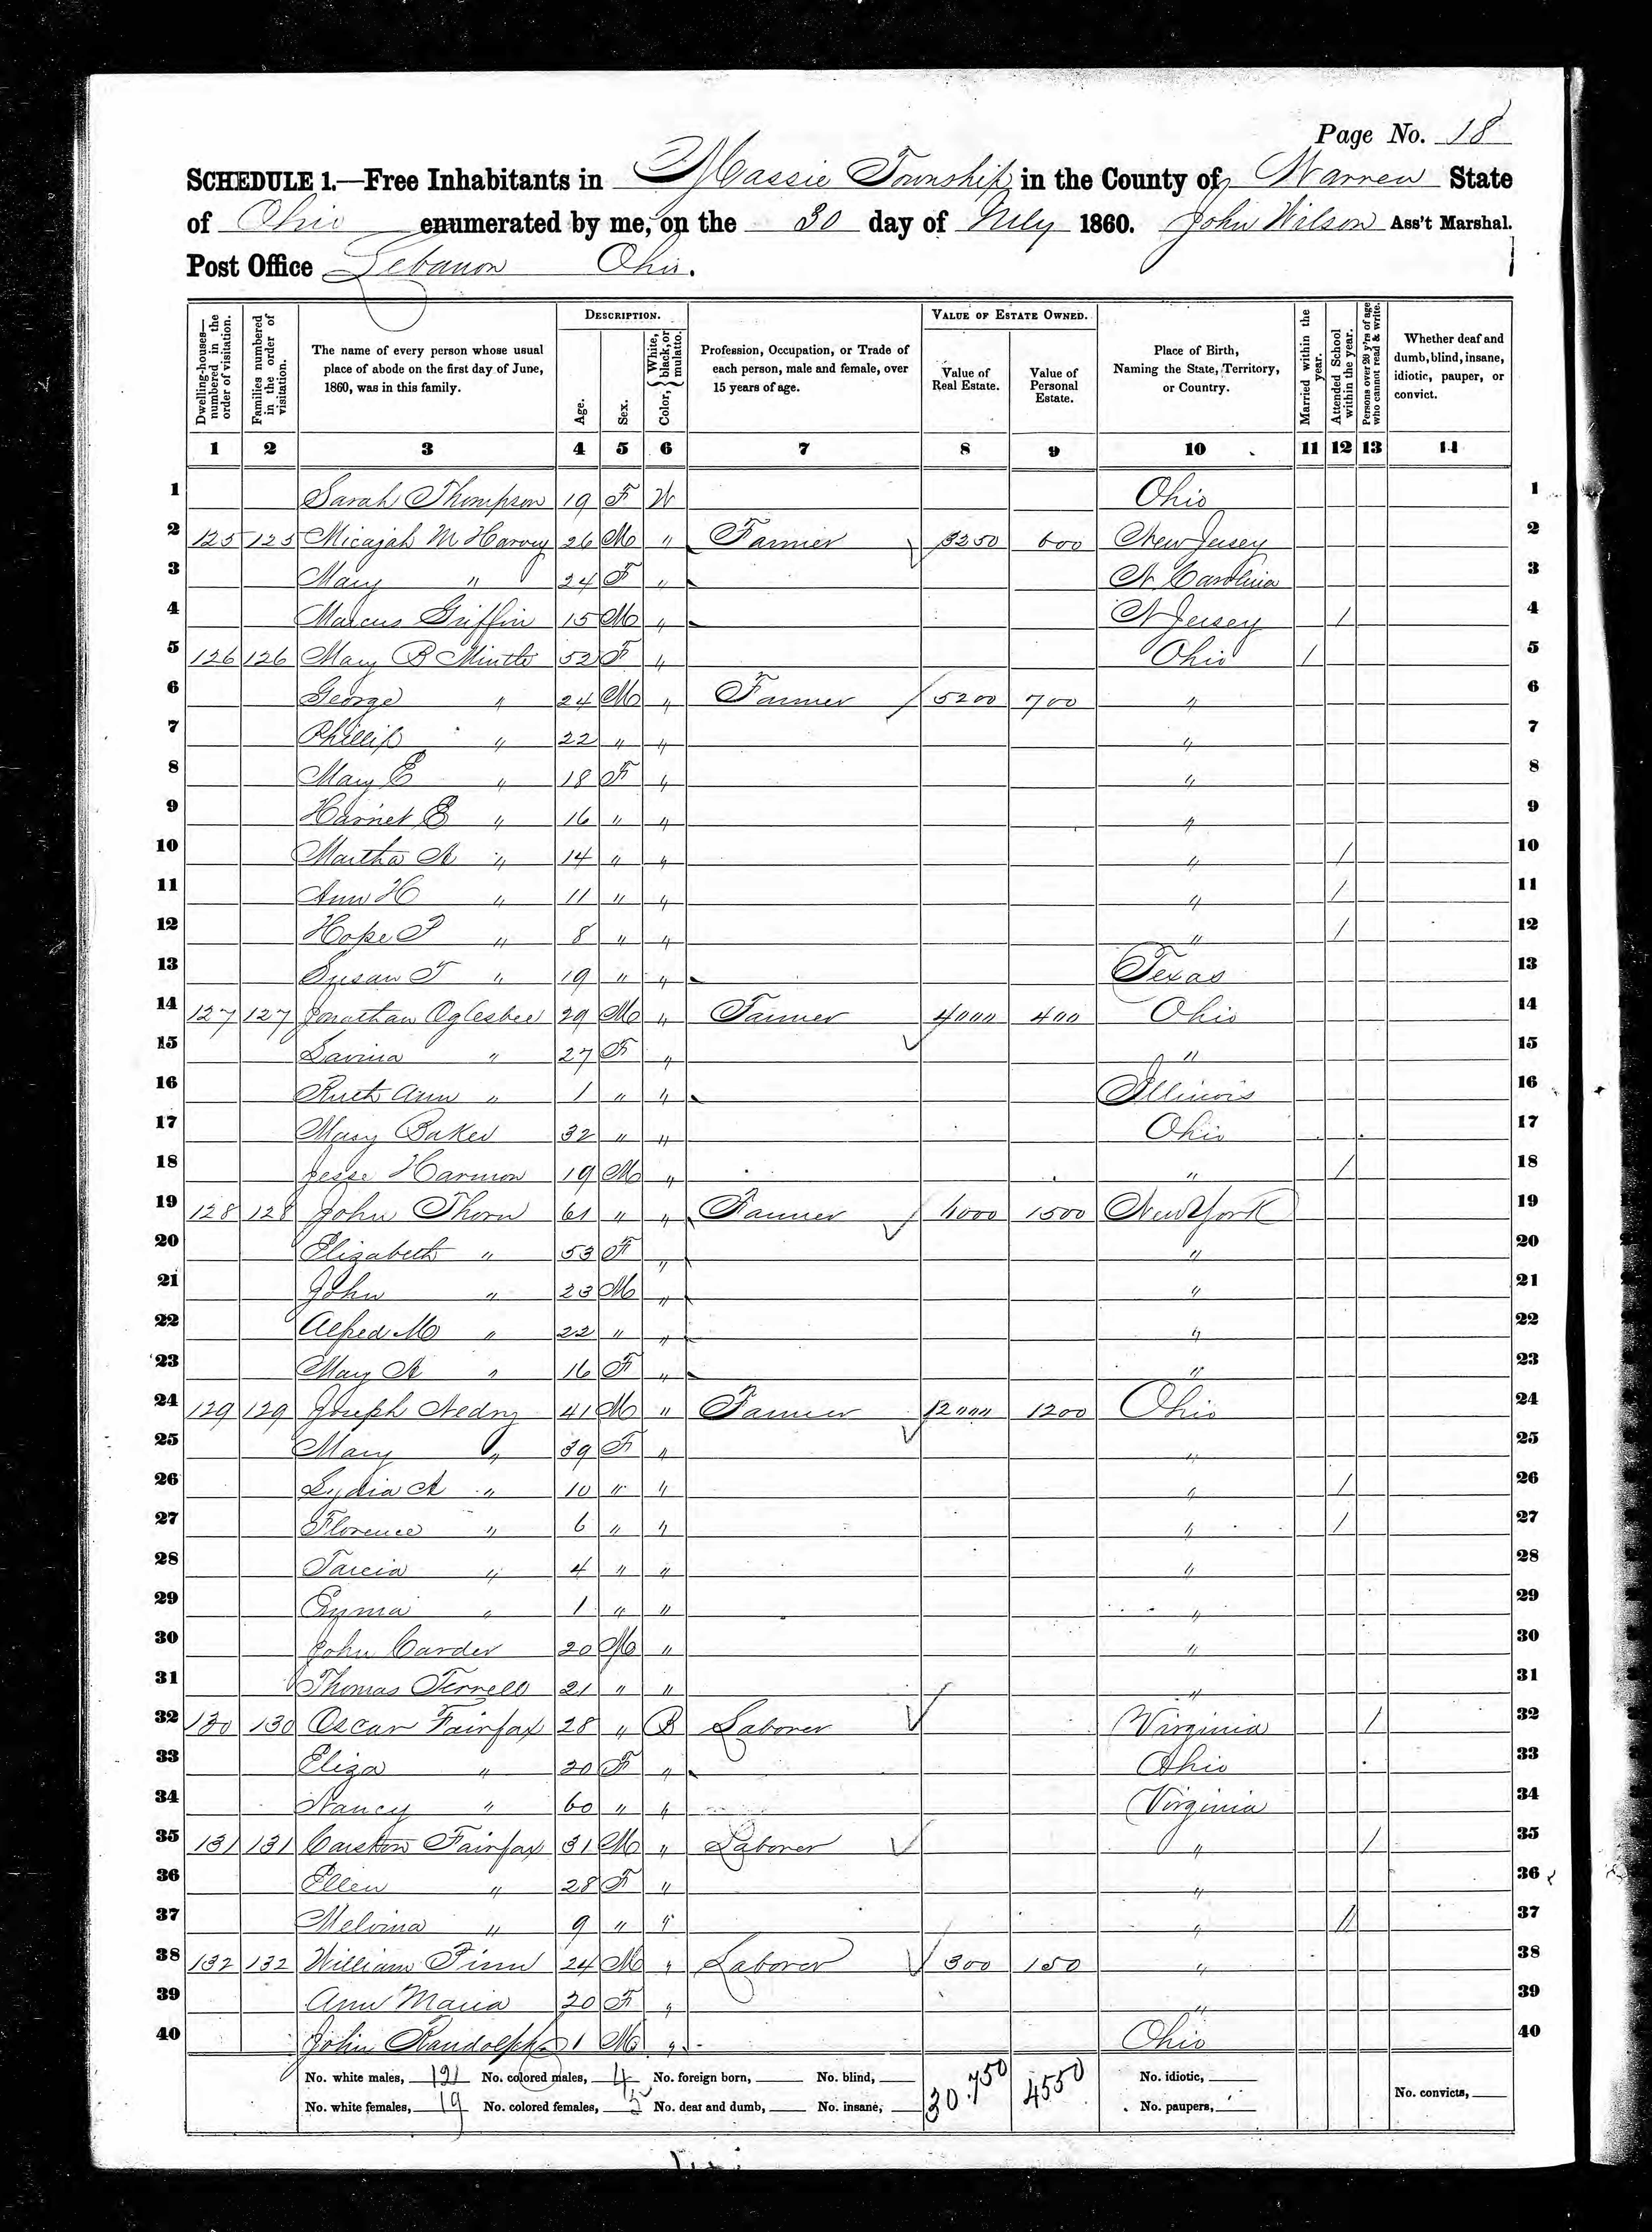 Page No. 18
SCHEDULE 1.—Free Inhabitants in Massie Township in the County of Warren State
of Ohio enumerated by me, on the 30 day of July 1860. John Wilson Ass't Marshal.
Post Office Lebanon Ohio.
Dwelling-houses—numbered in the order of visitation. Families numbered in the order of visitation. The name of every person whose usual place of abode on the first day of June, 1860, was in this family. DESCRIPTION. Age. Sex. Color, { White, black, or mulatto. Profession, Occupation, or Trade of each person, male and female, over 15 years of age. VALUE OF ESTATE OWNED. Value of Real Estate. Value of Personal Estate. Place of Birth, Naming the State, Territory, or Country. Married within the year. Attended School within the year. Persons over 20 y'rs of age who cannot read & write. Whether deaf and dumb, blind, insane, idiotic, pauper, or convict.
1 2 3 4 5 6 7 8 9 10 11 12 13 14
1 Sarah Thompson 19 F W Ohio 1
2 125 125 Micajah M Harvey 26 M " Farmer 3250 600 New Jersey 2
3 Mary " 24 F " N Carolina 3
4 Marcus Griffin 15 M " N Jersey / 4
5 126 126 Mary B 52 F " Ohio / 5
6 George " 24 M " Farmer / 5200 700 " 6
7 Phillip " 22 " " " 7
8 Mary E " 18 F " " 8
9 Harriet E " 16 " " " 9
10 Martha A " 14 " " " / 10
11 Ann H " 11 " " " / 11
12 Hope " 8 " " " / 12
13 Susan T " 19 " " Texas 13
14 127 127 Jonathan Oglesbee 29 M " Farmer 4000 400 Ohio 14
15 Lavina " 27 F " " 15
16 Ruth Ann " 1 " " Illinois 16
17 Mary Baker 32 " " Ohio 17
18 Jesse Harmon 19 M " " / 18
19 128 128 John Thorn 61 " " Farmer 1500 New York 19
20 Elizabeth " 53 F " " 20
21 John " 23 M " " 21
22 Alfred M " 22 " " " 22
23 Mary A " 16 F " " 23
24 129 129 Joseph Nedry 41 M " Farmer 12000 1200 Ohio 24
25 Mary " 39 F " " 25
26 Lydia A " 10 " " " / 26
27 Florence " 6 " " " / 27
28 " 4 " " " 28
29 Emma " 1 " " " 29
30 John Carder 20 M " " 30
31 Thomas Terrell 21 " " " 31
32 130 130 Oscar Fairfax 28 " B Laborer Virginia / 32
33 Eliza " 20 F " Ohio 33
34 Nancy " 60 " " Virginia 34
35 131 131 Fairfax 31 M " Laborer " / 35
36 Ellen " 28 F " " 36
37 Melvina " 9 " " " / 37
38 132 132 William Finn 24 M " Laborer 300 150 " 38
39 Ann Maria 20 F " " 39
40 John Randolph 1 M " Ohio 40
No. white males, No. colored males, 4 No. foreign born, No. blind, 30.750 4550 No. idiotic,
No. white females, 19 No. colored females, 5 No. deaf and dumb, No. insane, No. paupers, No. convicts,